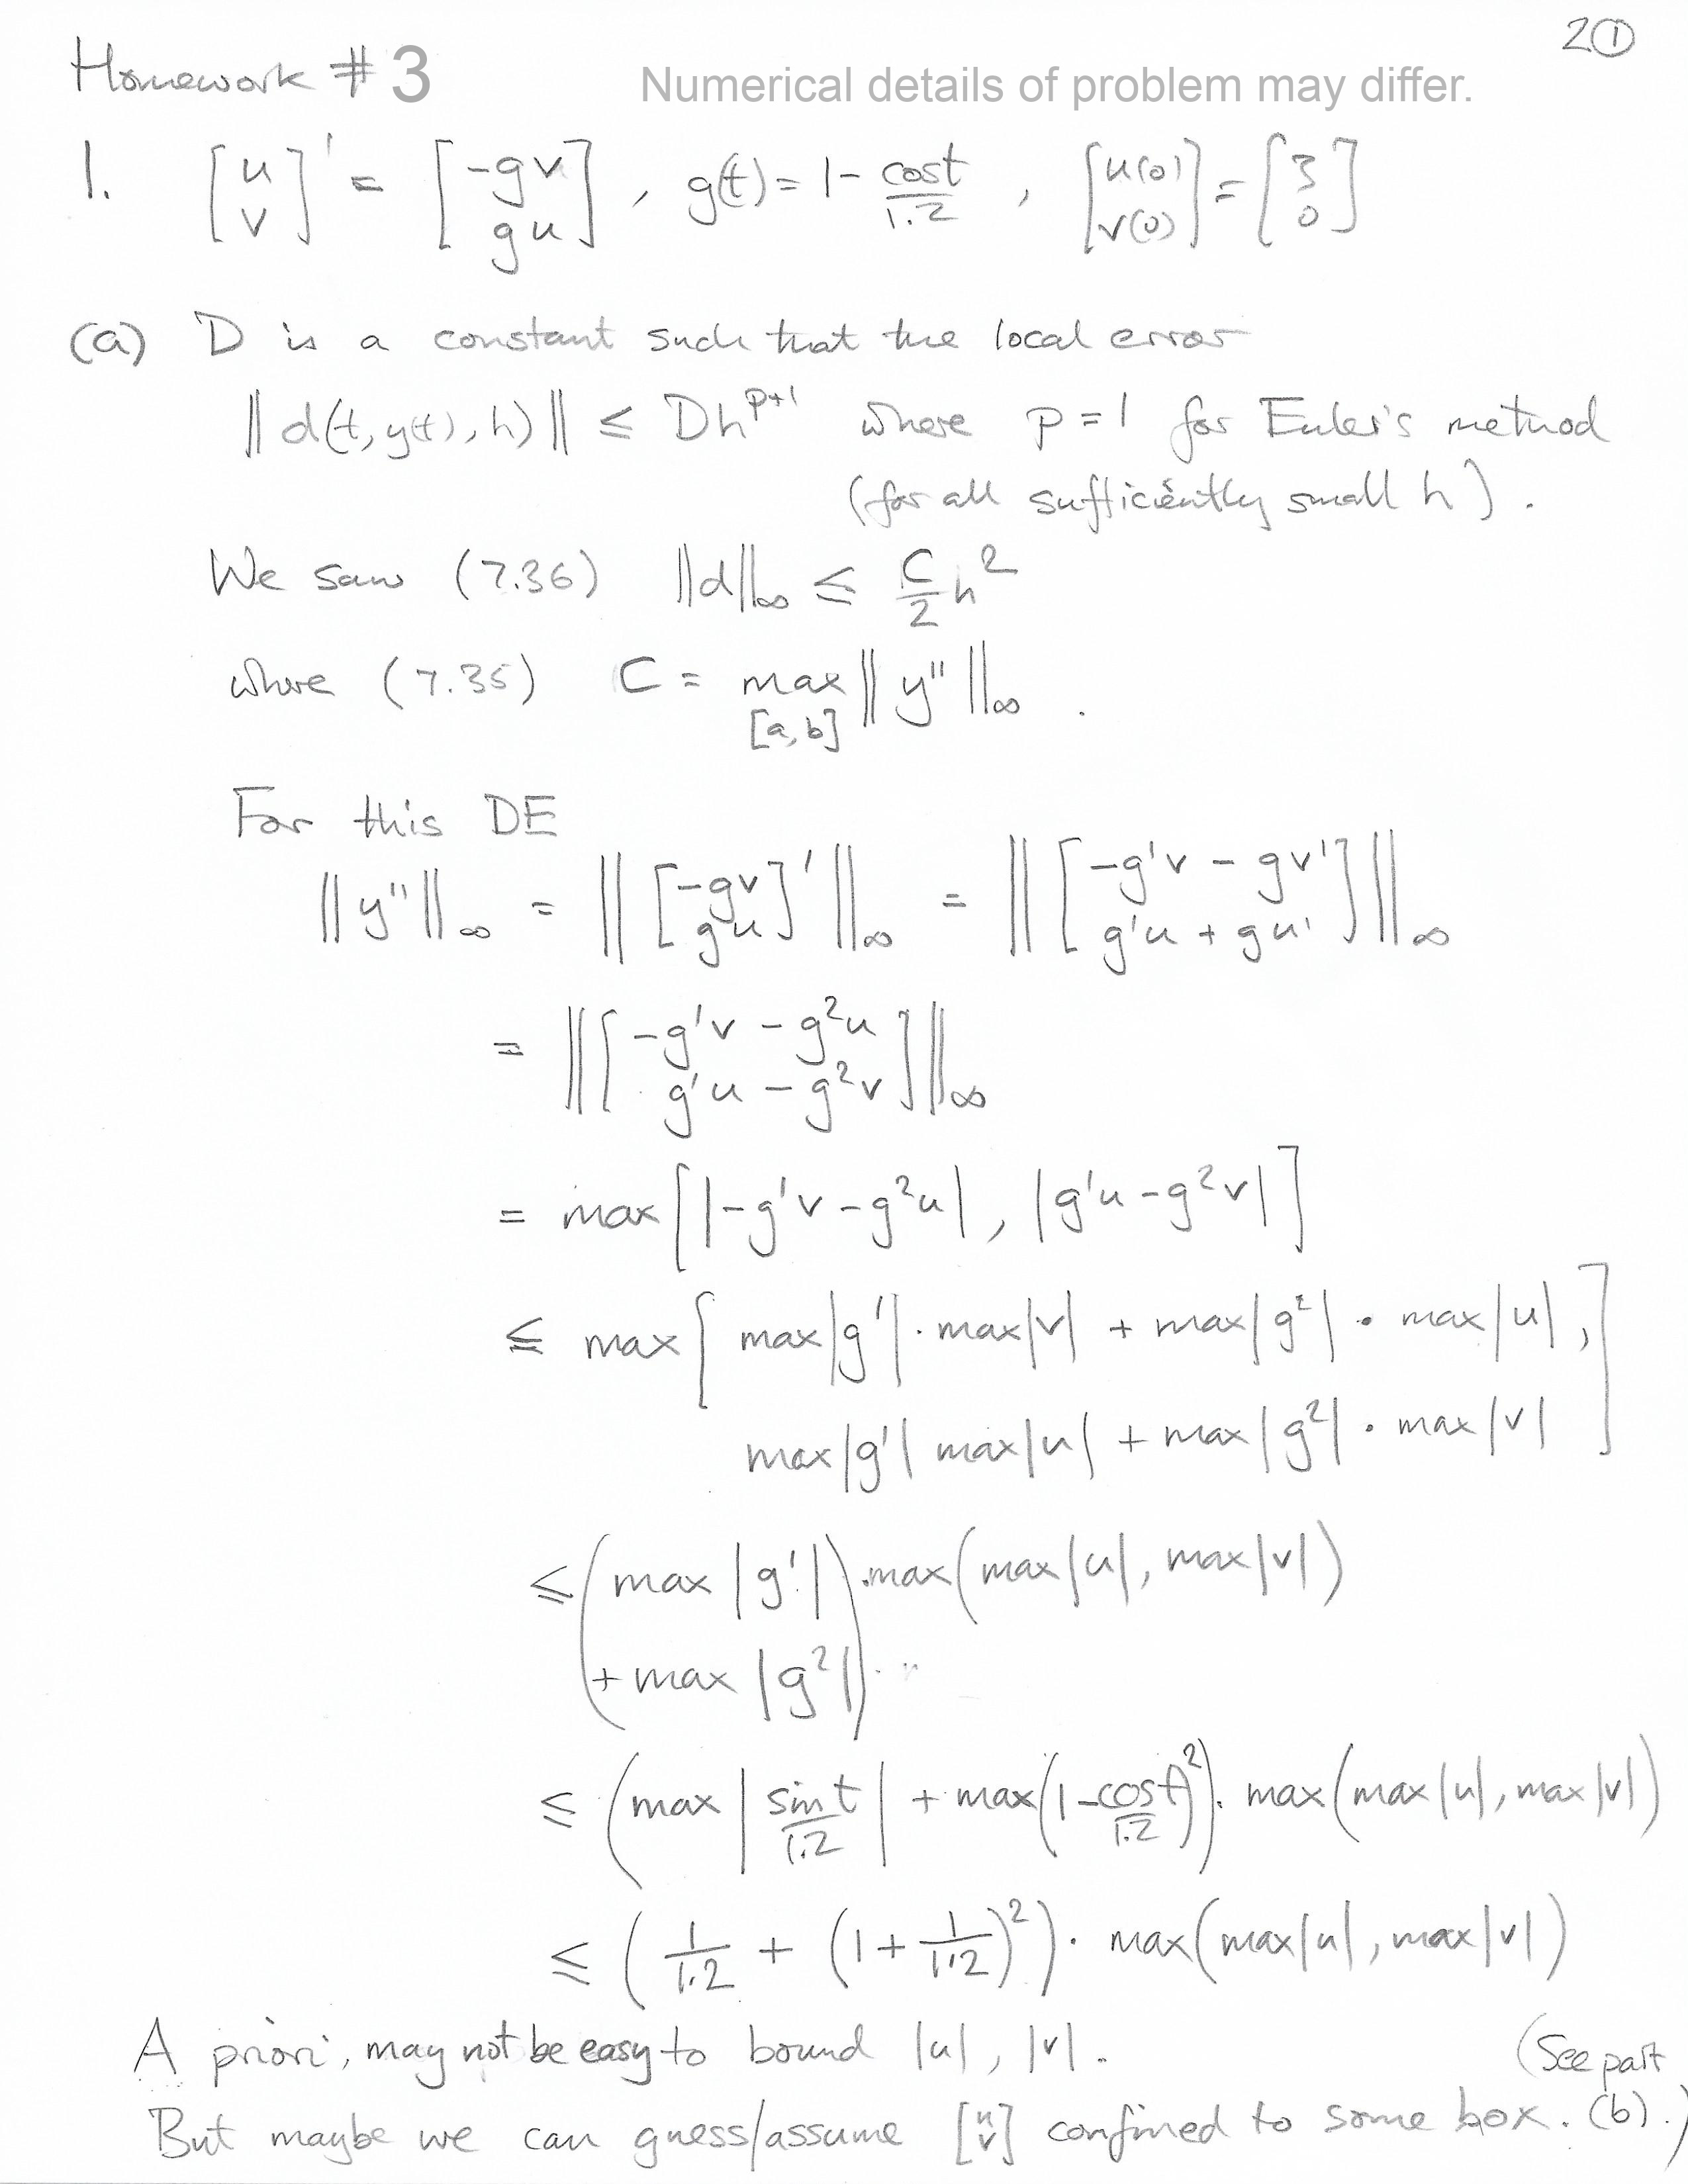 2①
Homework # 3 Numerical details of problem may differ.
1. [u v]' = [-gv gu], g(t) = 1 - cost/1.2, [u(0) v(0)] = [3 0]
(a) D is a constant such that the local error
||d(t, y(t), h)|| ≤ Dh^{p+1} where p = 1 for Euler's method
(for all sufficiently small h).
We saw (7.36) ||d||∞ ≤ C/2 h²
where (7.35) C = max [a,b] ||y''||∞.
For this DE
||y''||∞ = ||[-gv gu]'||∞ = ||[-g'v - gv' g'u + gu']||∞
= ||[-g'v - g²u g'u - g²v]||∞
= max[|-g'v - g²u|, |g'u - g²v|]
≤ max[max|g'|·max|v| + max|g²|·max|u|,
max|g'| max|u| + max|g²|·max|v|]
≤ (max|g'| + max|g²|)·max(max|u|, max|v|)
≤ (max|sint/1.2| + max(1-cost/1.2)²)·max(max|u|, max|v|)
≤ (1/1.2 + (1+1/1.2)²)·max(max|u|, max|v|)
A priori, may not be easy to bound |u|, |v|. (See part
But maybe we can guess/assume [u v] confined to some box. (b).)